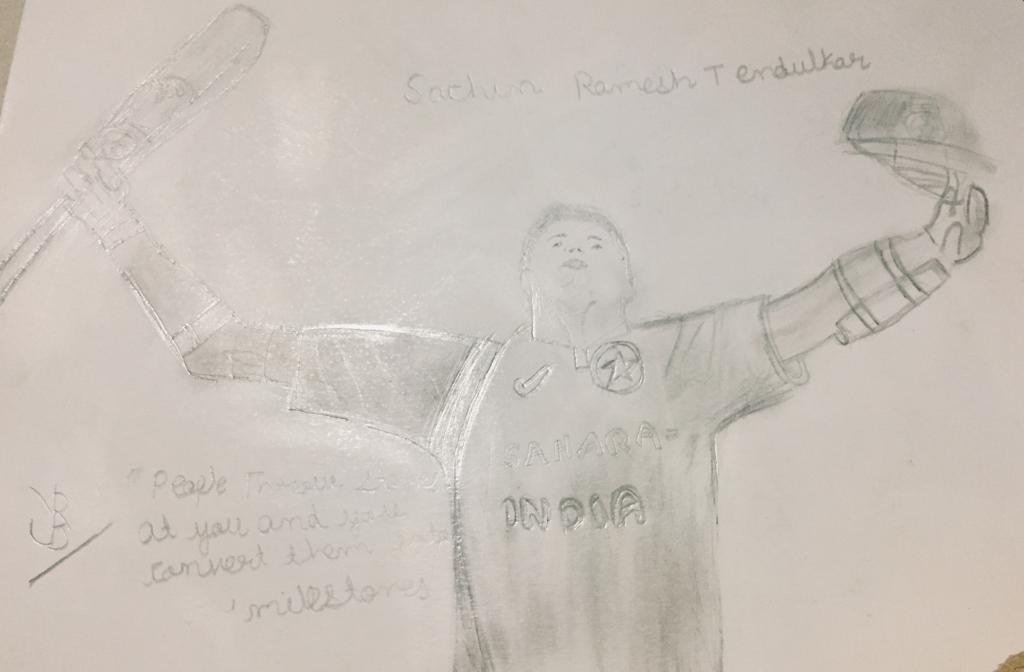 Sachin Ramesh Tendulkar
SAHARA
INDIA
"People Throw Stones
at you and you
convert them into
'milestones